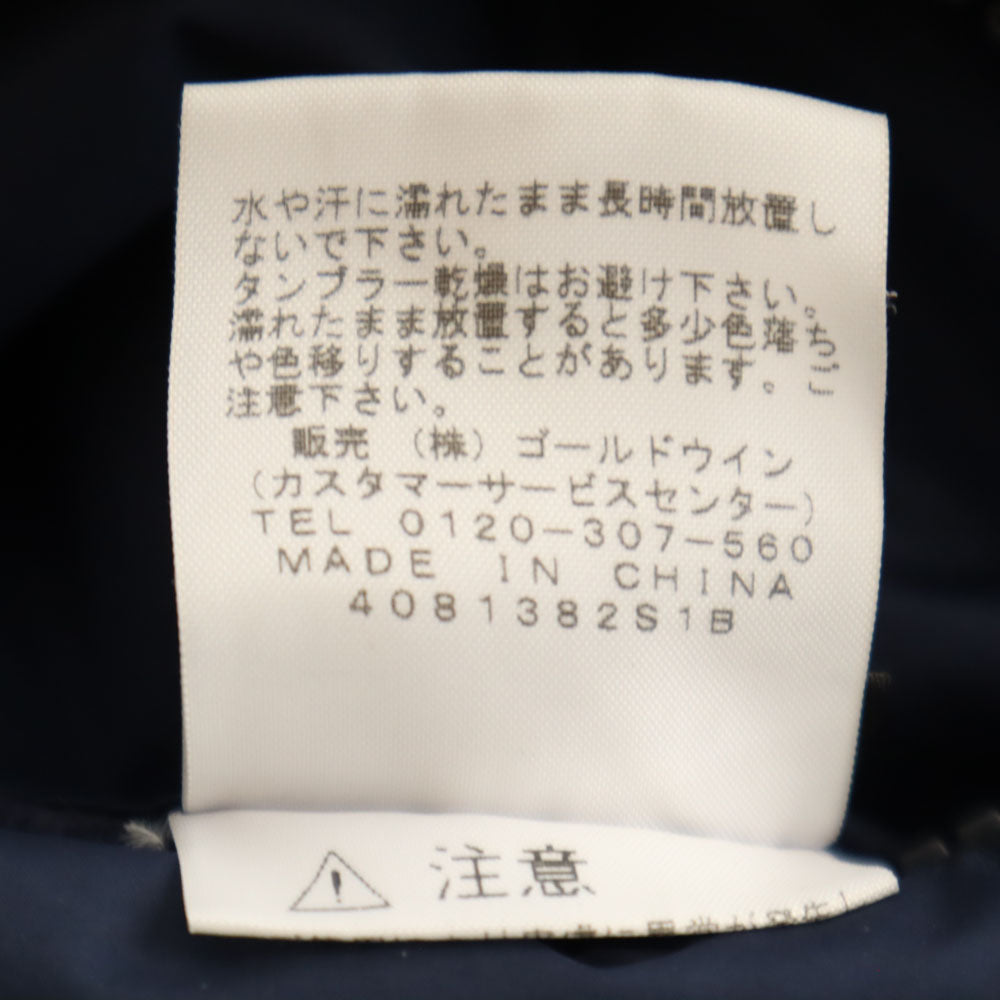 水や汗に濡れたまま長時間放置し
ないで下さい。
タンブラー乾燥はお避け下さい。
濡れたまま放置すると多少色落ち
や色移りすることがあります。ご
注意下さい。
販売 (株) ゴールドウイン
(カスタマーサービスセンター)
TEL 0120-307-560
MADE IN CHINA
4081382S1B
注意